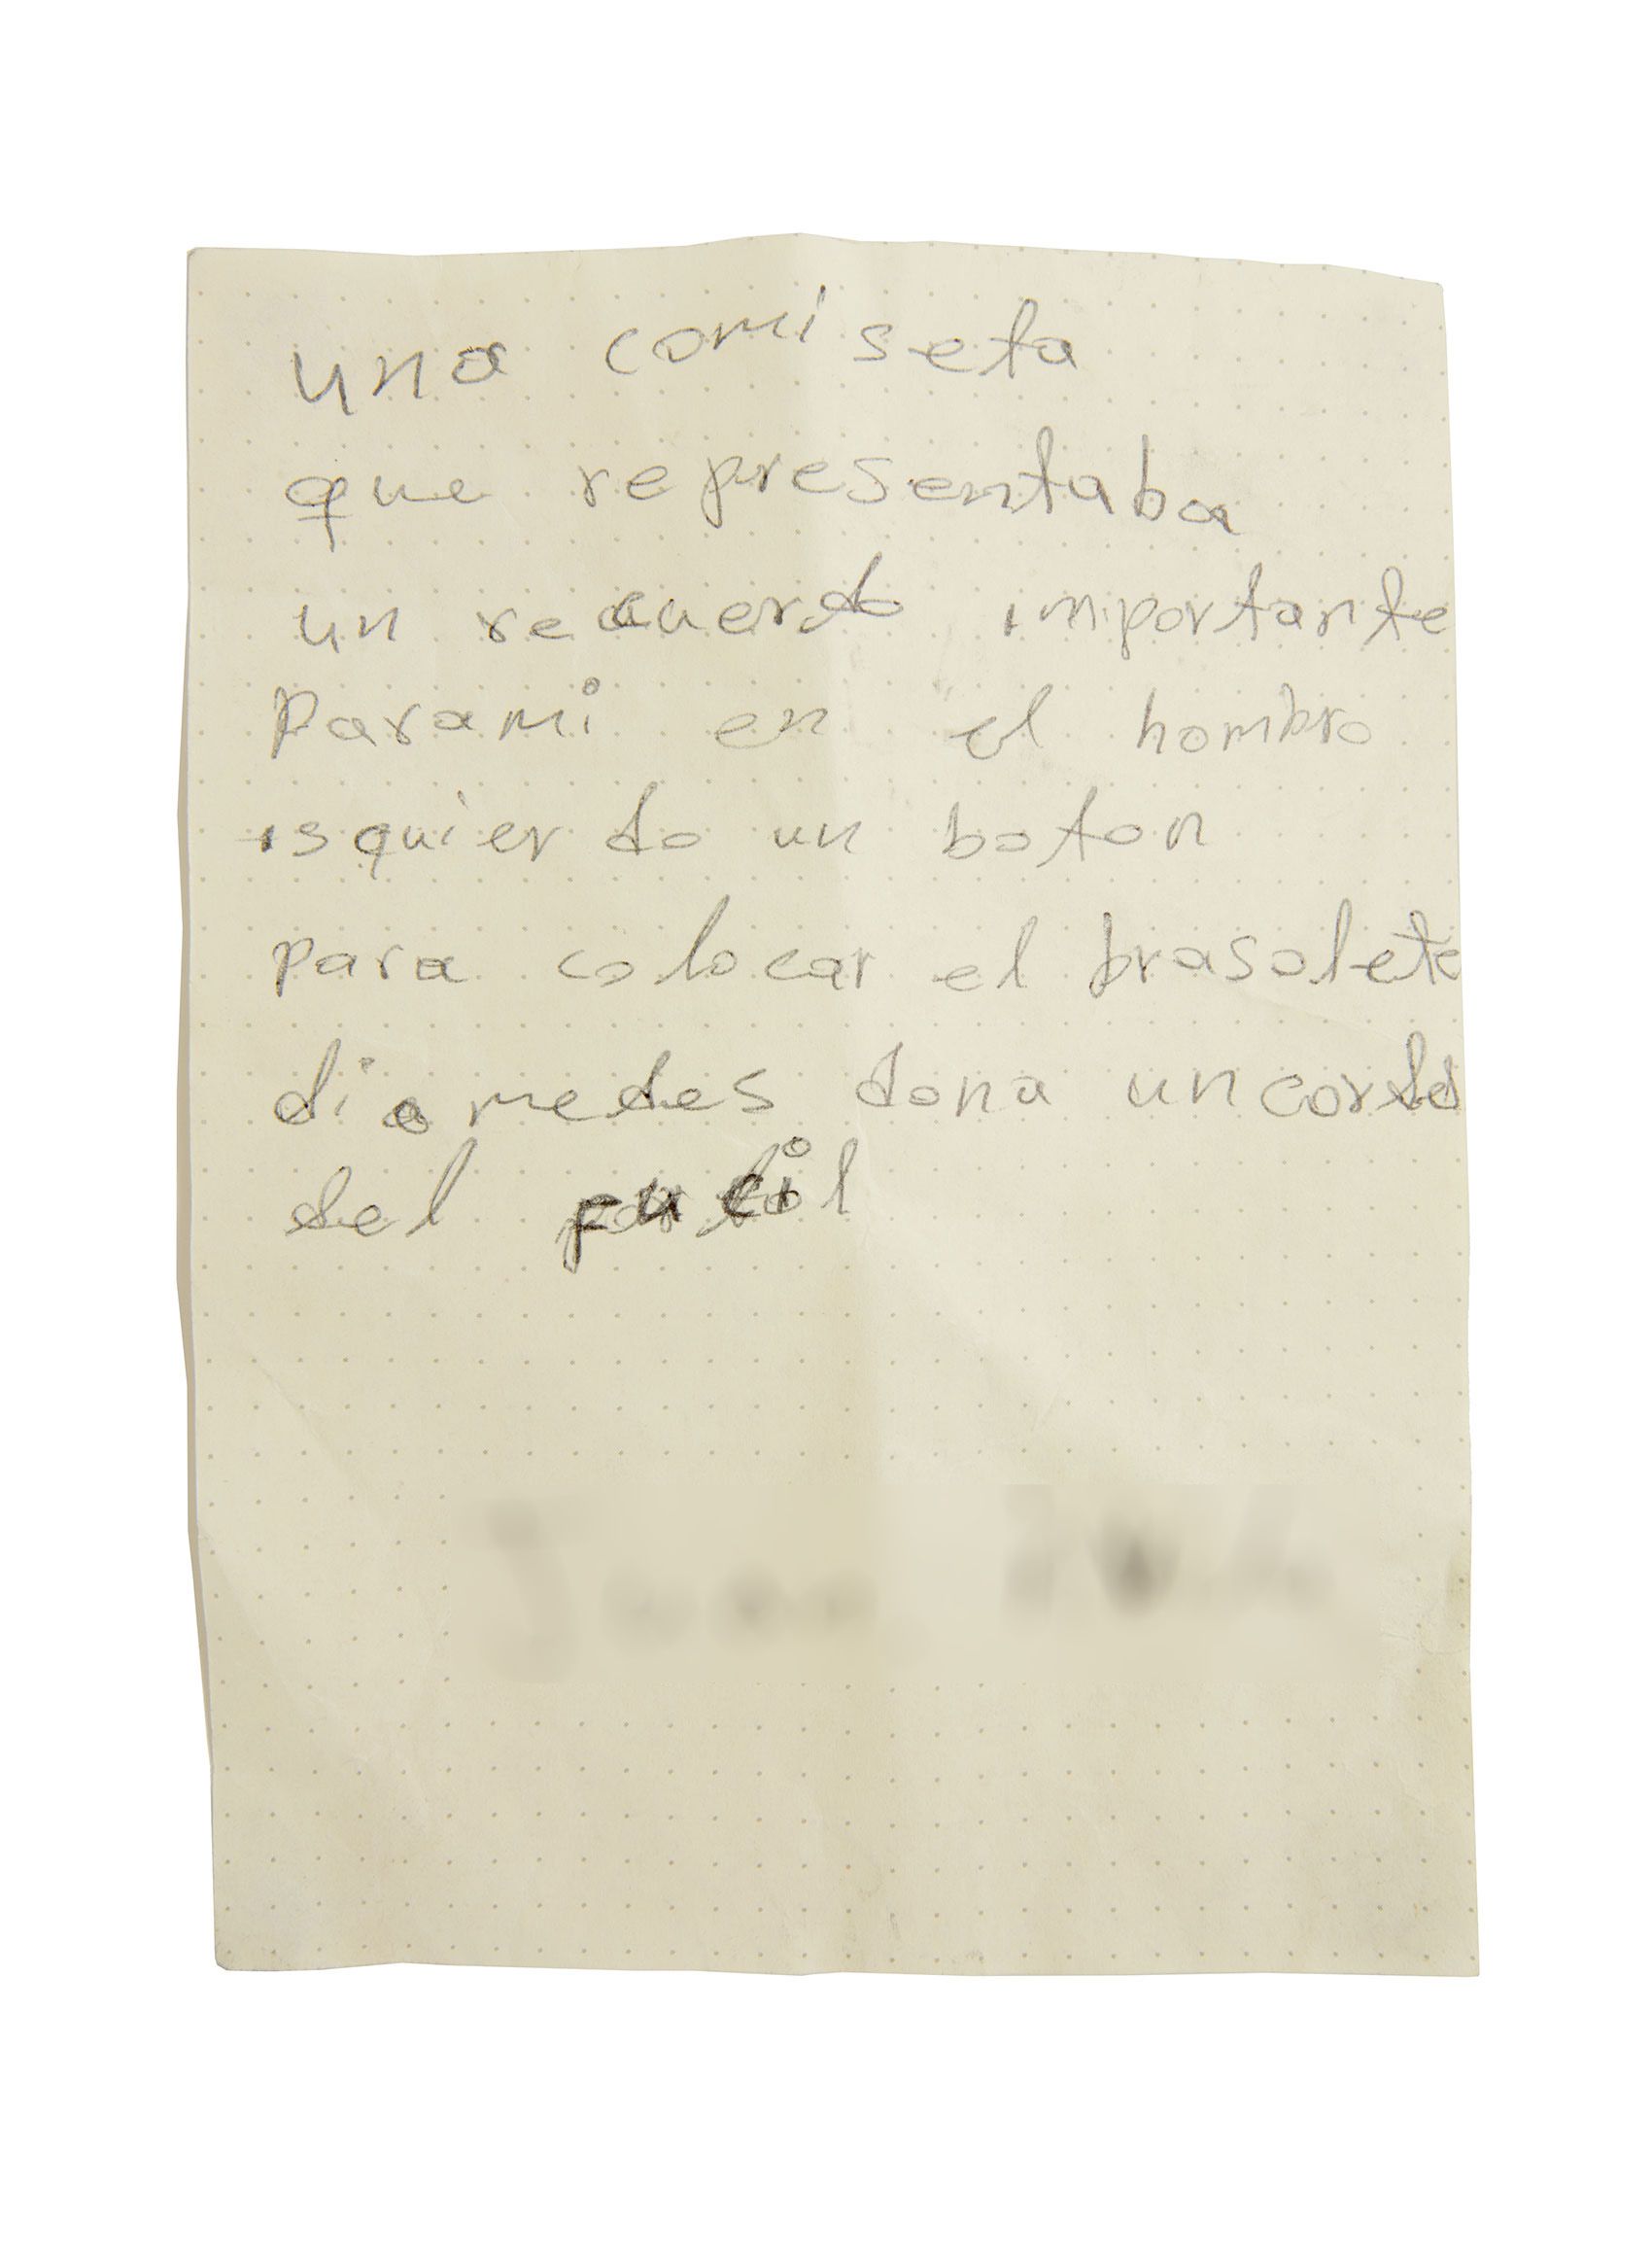 una comiseta
que representaba
un recuerdo importante
Parami en el hombro
isquierdo un boton
para colocar el brasolete
diomedes dona un cordo
del fucil